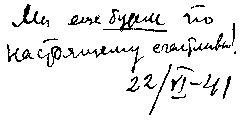 Мы еще будем по
настоящему счастливы!
22/VI-41